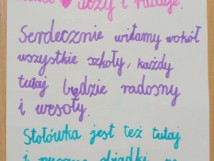 ♥ uczy i raduje.
Serdecznie witamy wokół
wszystkie szkoły, każdy
tutaj będzie radosny
i wesoły.
Stołówka jest też tutaj
i obiadki